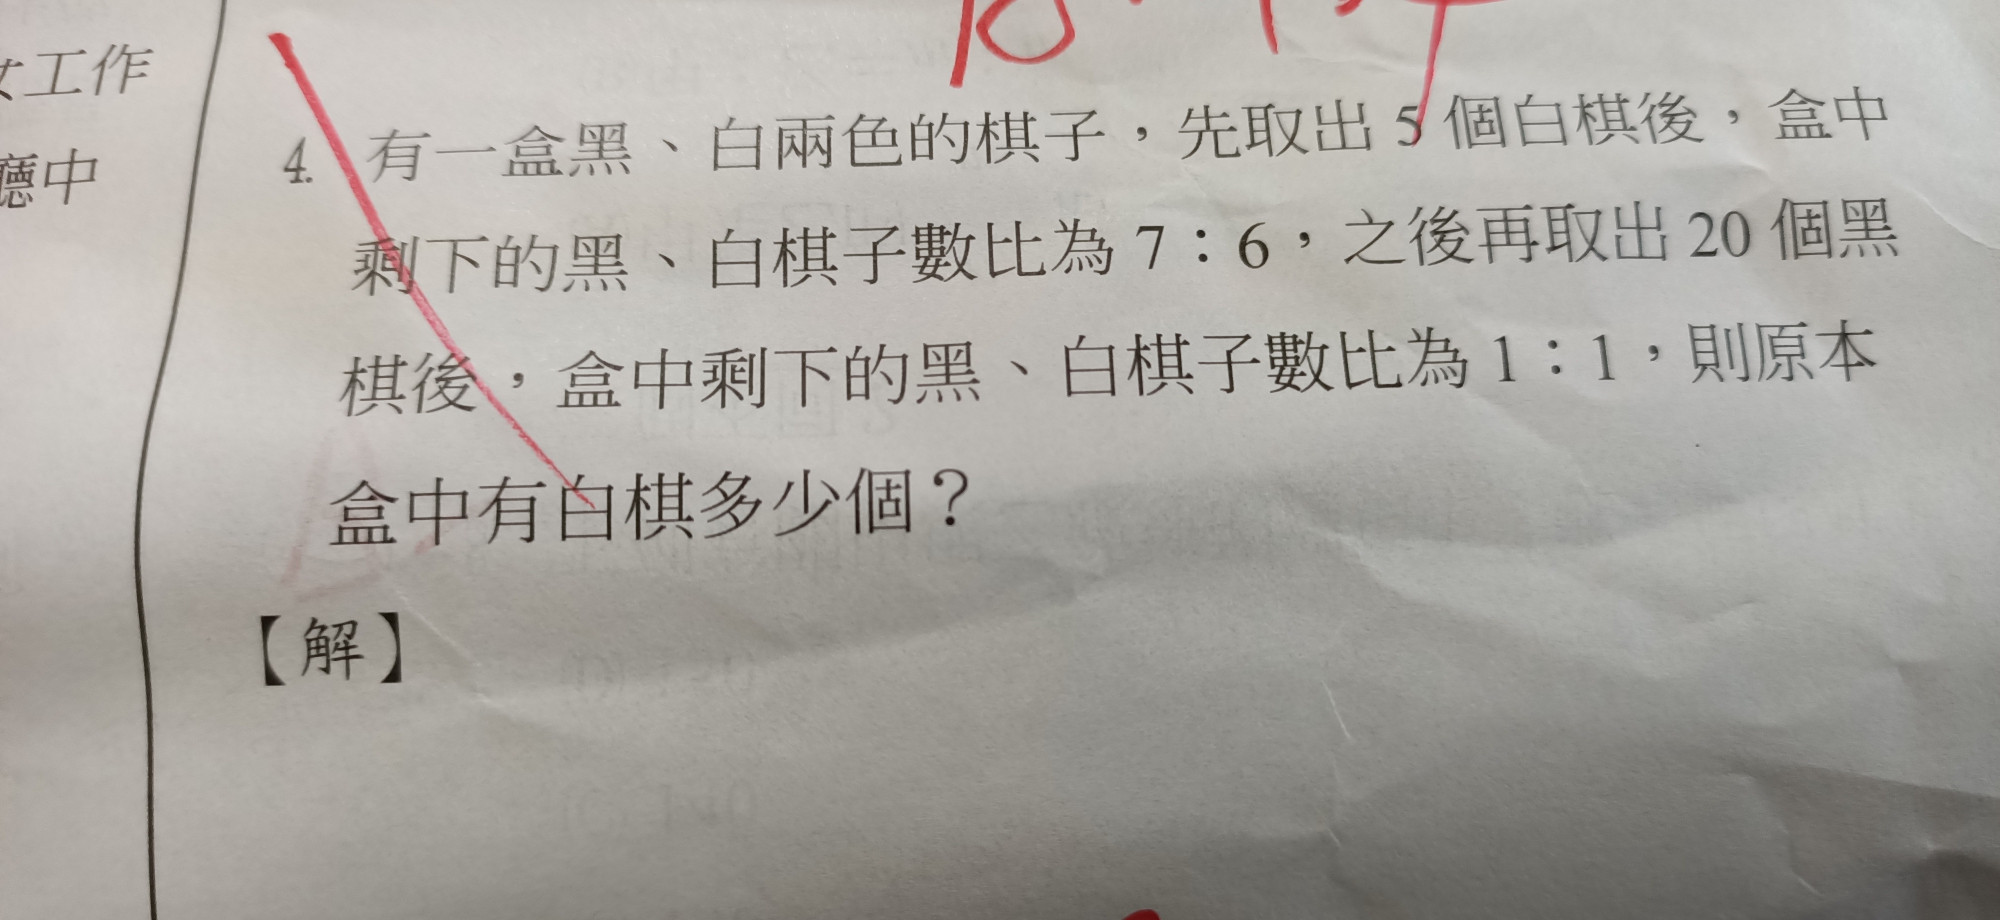 工作
廳中
4. 有一盒黑、白兩色的棋子，先取出 5 個白棋後，盒中
剩下的黑、白棋子數比為 7：6，之後再取出 20 個黑
棋後，盒中剩下的黑、白棋子數比為 1：1，則原本
盒中有白棋多少個？
【解】